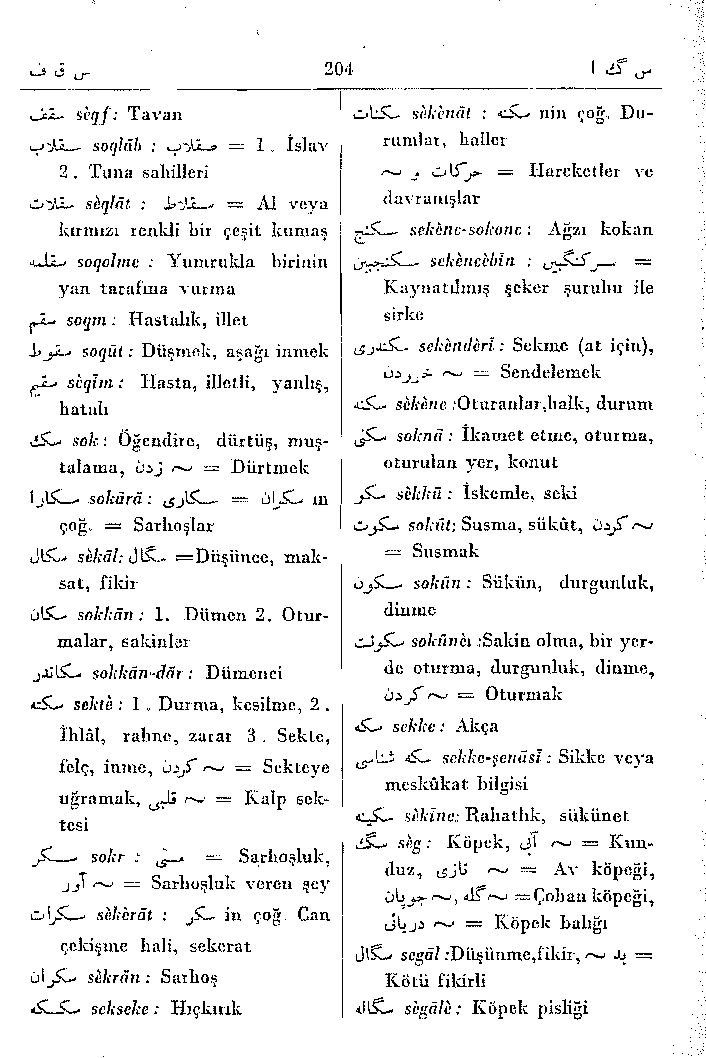 س ق ف
204
س گ ا
سقف sèqf: Tavan
سقلاب soqlāb : صقلاب = 1. İslav
2. Tuna sahilleri
سقلات sèqlāt : سقلاط = Al veya
kırmızı renkli bir çeşit kumaş
سقلمه soqolme : Yumrukla birinin
yan tarafına vurma
سقم soqm: Hastalık, illet
سقوط soqūt: Düşmek, aşağı inmek
سقیم sèqīm: Hasta, illetli, yanlış,
hatalı
سك sok: Öğendire, dürtüş, muş-
talama, زدن ~ = Dürtmek
سكارا sokārā: سكاری = سكران ın
çoğ. = Sarhoşlar
سكال sèkāl: سگال =Düşünce, mak-
sat, fikir
سكان sokkān: 1. Dümen 2. Otur-
malar, sakinler
سكاندار sokkān-dār: Dümenci
سكته sektè: 1. Durma, kesilme, 2.
İhlâl, rahne, zarar 3. Sekte,
felç, inme, كردن ~ = Sekteye
uğramak, قلبی ~ = Kalp sek-
tesi
سكر sokr : مستی = Sarhoşluk,
آور ~ = Sarhoşluk veren şey
سكرات sèkèrāt : سكر in çoğ. Can
çekişme hali, sekerat
سكران sèkrān: Sarhoş
سكسكه sekseke: Hıçkırık
سكنات sèkènāt : سكنه nin çoğ. Du-
rumlar, haller
حركات و ~ = Hareketler ve
davranışlar
سكنج sekènc-sokonc: Ağzı kokan
سكنجبین sekèncèbīn : سركنگبین =
Kaynatılmış şeker şurubu ile
sirke
سكندری sekèndèrī: Sekme (at için),
خوردن ~ = Sendelemek
سكنه sèkène :Oturanlar,halk, durum
سكنی soknā: İkamet etme, oturma,
oturulan yer, konut
سكو sèkkū: İskemle, seki
سكوت sokūt: Susma, sükût, كردن ~
= Susmak
سكون sokūn: Sükün, durgunluk,
dinme
سكونت sokūnèt :Sakin olma, bir yer-
de oturma, durgunluk, dinme,
كردن ~ = Oturmak
سكه sekke: Akça
سكه شناسی sekke-şenāsī: Sikke veya
meskûkat bilgisi
سكینه sèkīne: Rahatlık, sükünet
سگ sèg: Köpek, آبی ~ = Kun-
duz, تازی ~ = Av köpeği,
گله ~, چوپان ~ =Çoban köpeği,
دریائی ~ = Köpek balığı
سگال segāl :Düşünme,fikir, بد ~ =
Kötü fikirli
سگاله sègālè: Köpek pisliği